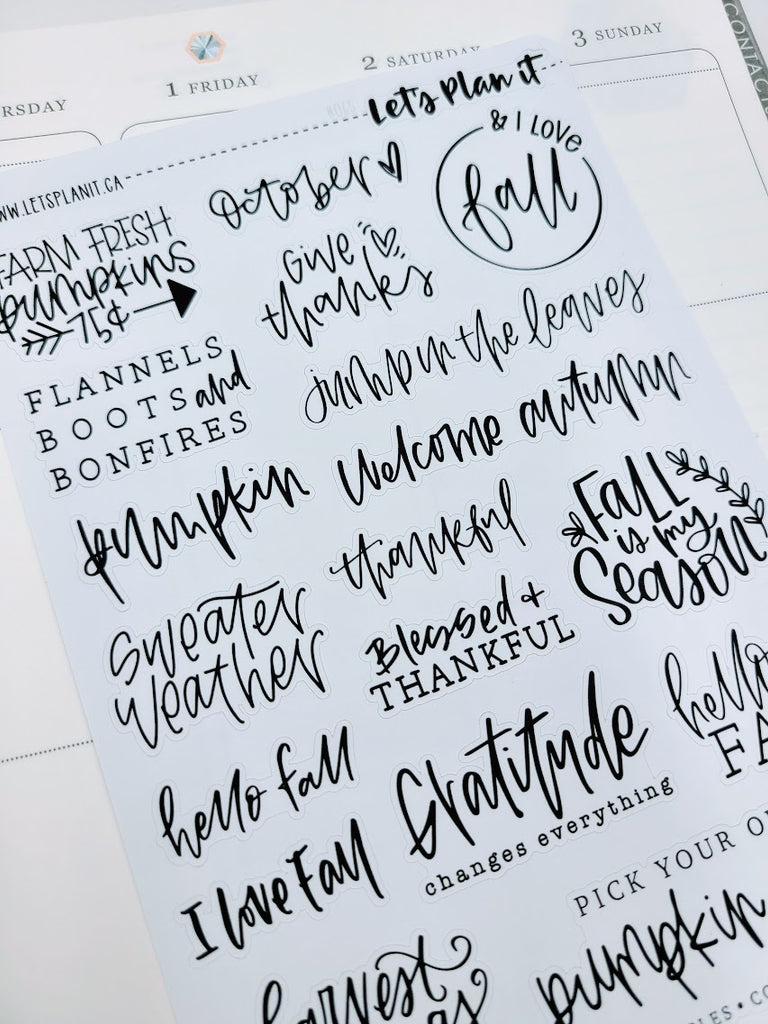 1 FRIDAY
2 SATURDAY
3 SUNDAY
Let's Plan it
WW.LETSPLANIT.CA
October
& I LOVE
fall
FARM FRESH
pumpkins
75¢
GIVE
thanks
jump in the leaves
FLANNELS
BOOTS and
BONFIRES
welcome autumn
pumpkin
thankful
FALL
is my
Season
Sweater
weather
Blessed +
THANKFUL
hello
FA
hello fall
Gratitude
changes everything
I love Fall
PICK YOUR O
pumpkin
harvest